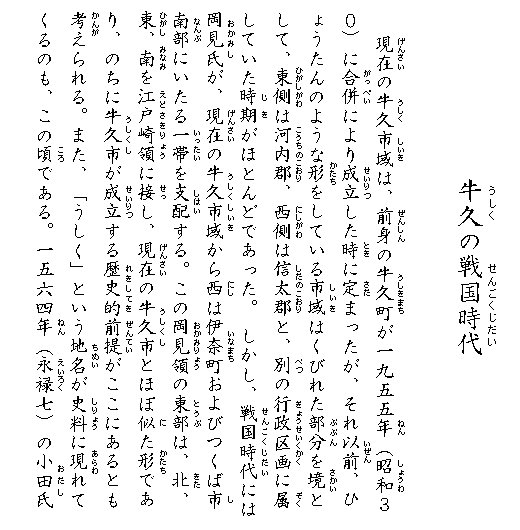 牛久の戦国時代
現在の牛久市域は、前身の牛久町が一九五五年（昭和３
０）に合併により成立した時に定まったが、それ以前、ひ
ょうたんのような形をしている市域はくびれた部分を境と
して、東側は河内郡、西側は信太郡と、別の行政区画に属
していた時期がほとんどであった。　しかし、戦国時代には
岡見氏が、現在の牛久市域から西は伊奈町およびつくば市
南部にいたる一帯を支配する。この岡見領の東部は、北、
東、南を江戸崎領に接し、現在の牛久市とほぼ似た形であ
り、のちに牛久市が成立する歴史的前提がここにあるとも
考えられる。また、「うしく」という地名が史料に現れて
くるのも、この頃である。一五六四年（永禄七）の小田氏